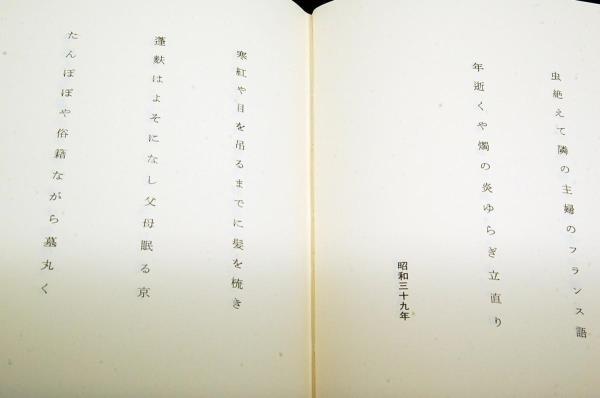 虫絶えて隣の主婦のフランス語
年逝くや燭の炎ゆらぎ立直り
昭和三十九年
寒紅や目を吊るまでに髪を梳き
蓬麩はよそになし父母眠る京
たんぽぽや俗籍ながら墓丸く